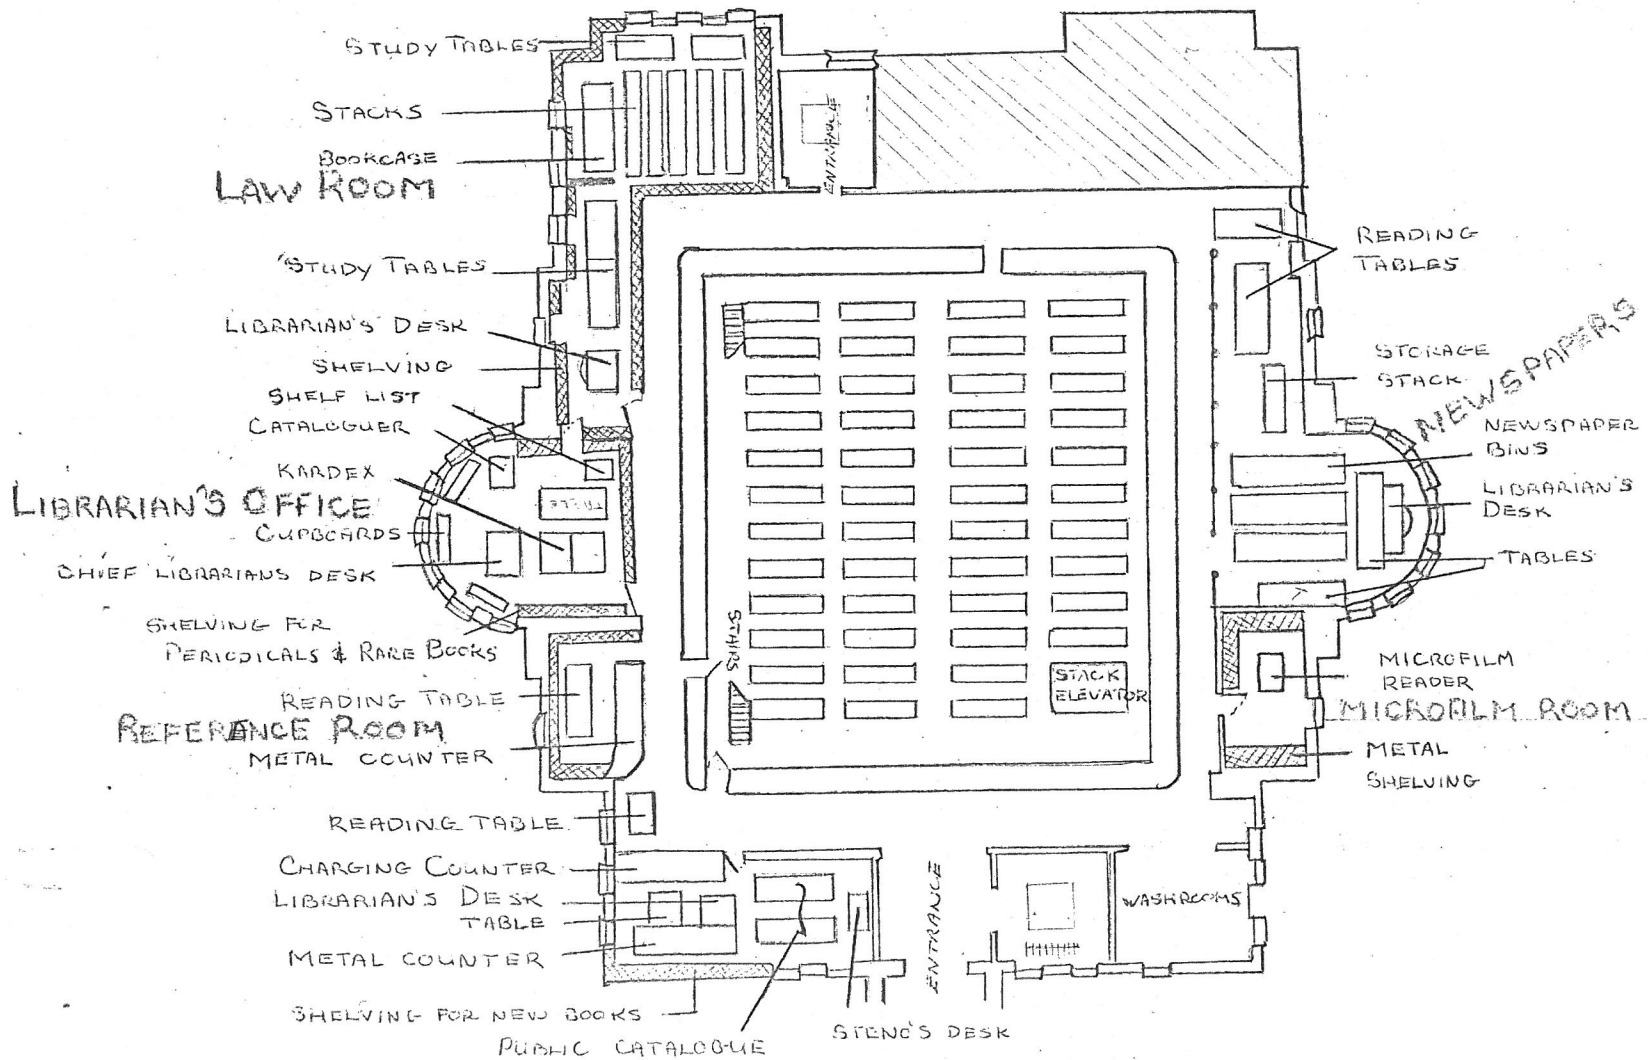 STUDY TABLES
STACKS
BOOKCASE
LAW ROOM
STUDY TABLES
LIBRARIAN'S DESK
SHELVING
SHELF LIST
CATALOGUER
KARDEX
TABLE
LIBRARIAN'S OFFICE
CUPBOARDS
CHIEF LIBRARIANS DESK
SHELVING FOR
PERIODICALS & RARE BOOKS
READING TABLE
REFERENCE ROOM
METAL COUNTER
READING TABLE
CHARGING COUNTER
LIBRARIAN'S DESK
TABLE
METAL COUNTER
SHELVING FOR NEW BOOKS
PUBLIC CATALOGUE
STENO'S DESK
ENTRANCE
ENTRANCE
WASHROOMS
STAIRS
STACK
ELEVATOR
READING
TABLES
NEWSPAPERS
STORAGE
STACK
NEWSPAPER
BINS
LIBRARIAN'S
DESK
TABLES
MICROFILM
READER
MICROFILM ROOM
METAL
SHELVING